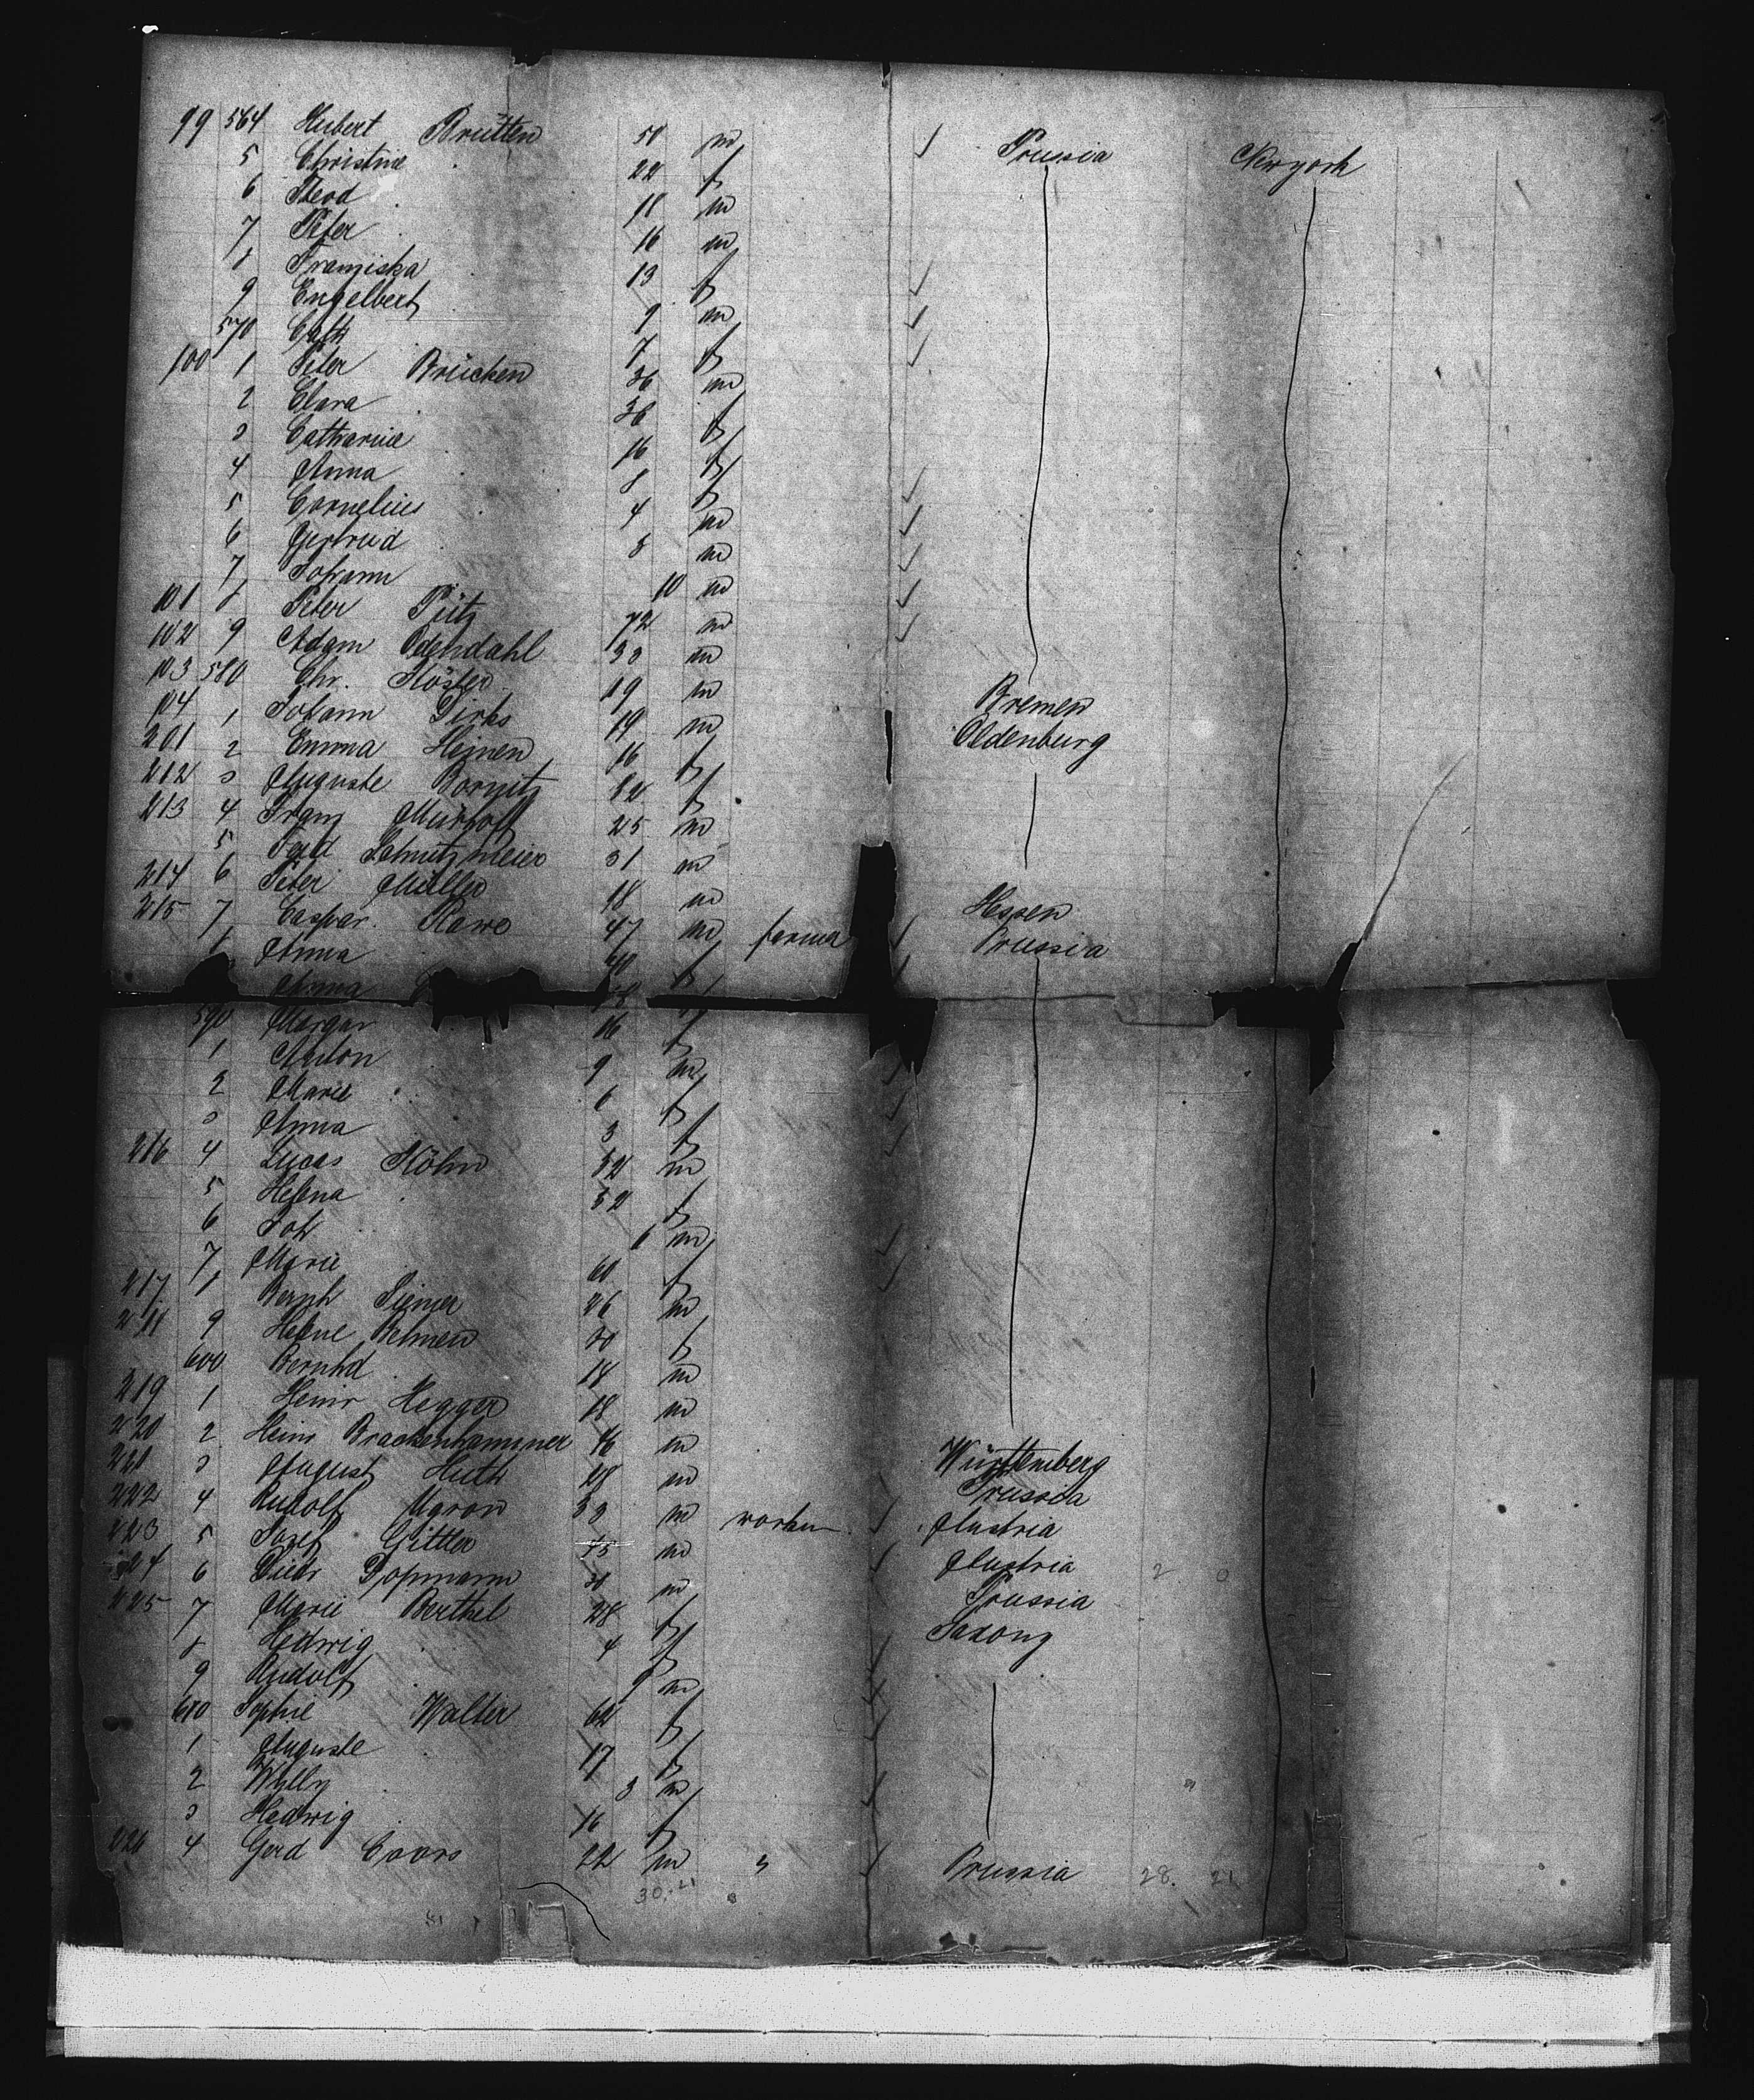 99 564 Hubert Brütten 51 m Prussia Newyork
5 Christine 22 f
6 Theod 18 m
7 Peter 16 m
8 Franziska 13 f
9 Engelbert 9 m
570 Cath 7 f
100 1 Peter Brücken 36 m
2 Clara 36 f
3 Catharine 16 f
4 Anna 8 f
5 Cornelius 4 m
6 Gertrud 3 m
7 Johann 10 m
101 8 Peter Pütz 72 m
102 9 Adam Odendahl 30 m
103 580 Chr. 19 m Bremen
104 1 Johann Dirks 19 m Oldenburg
201 2 Emma Heinen 16 f
212 3 Auguste Bornitz 32 f
213 4 Franz 25 m
5 Ferd 31 m
214 6 Peter Müller 18 m Hessen
215 7 Caspar Rawe 47 m farmer Prussia
8 Anna 40 f
Anna
590 Margar 16 f
1 Anton 9 m
2 Marie 6 f
3 Anna 3 f
216 4 Lucas Höhn 32 m
5 Helena 32 f
6 Joh 6 m
7 Marie 60 f
217 8 Bernh Siemer 26 m
218 9 Helene 20 f
600 Bernhd 14 m
219 1 Heinr Hegger 18 m
220 2 Heinr Brackenhammer 16 m Württemberg
221 3 August Huth 28 m Prussia
222 4 Rudolf 33 m worker Austria
223 5 Josef Gittler 55 m Austria 2 0
224 6 Diedr 30 m Prussia
225 7 Marie Berthel 28 f Saxony
8 Hedwig 4 f
9 Rudolf 9 m
610 Sophie Walter 62 f
1 Auguste 17 f
2 Willy 3 m
3 Hedwig 16 f
226 4 Gerd Coors 22 m Prussia 28. 21
30, 21